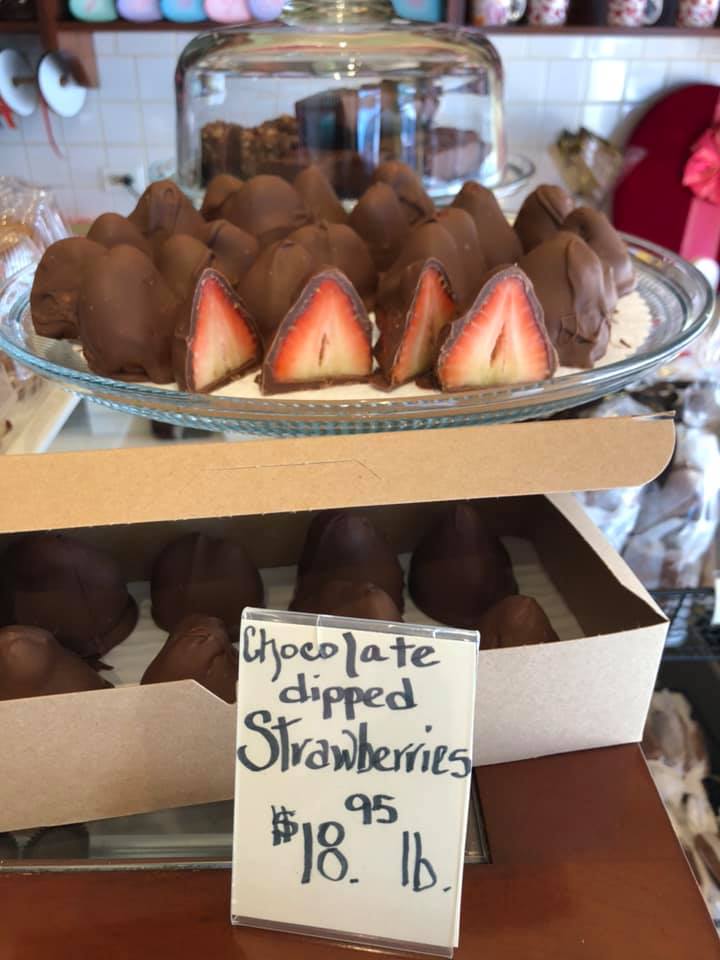 Chocolate
dipped
Strawberries
$18.95 lb.